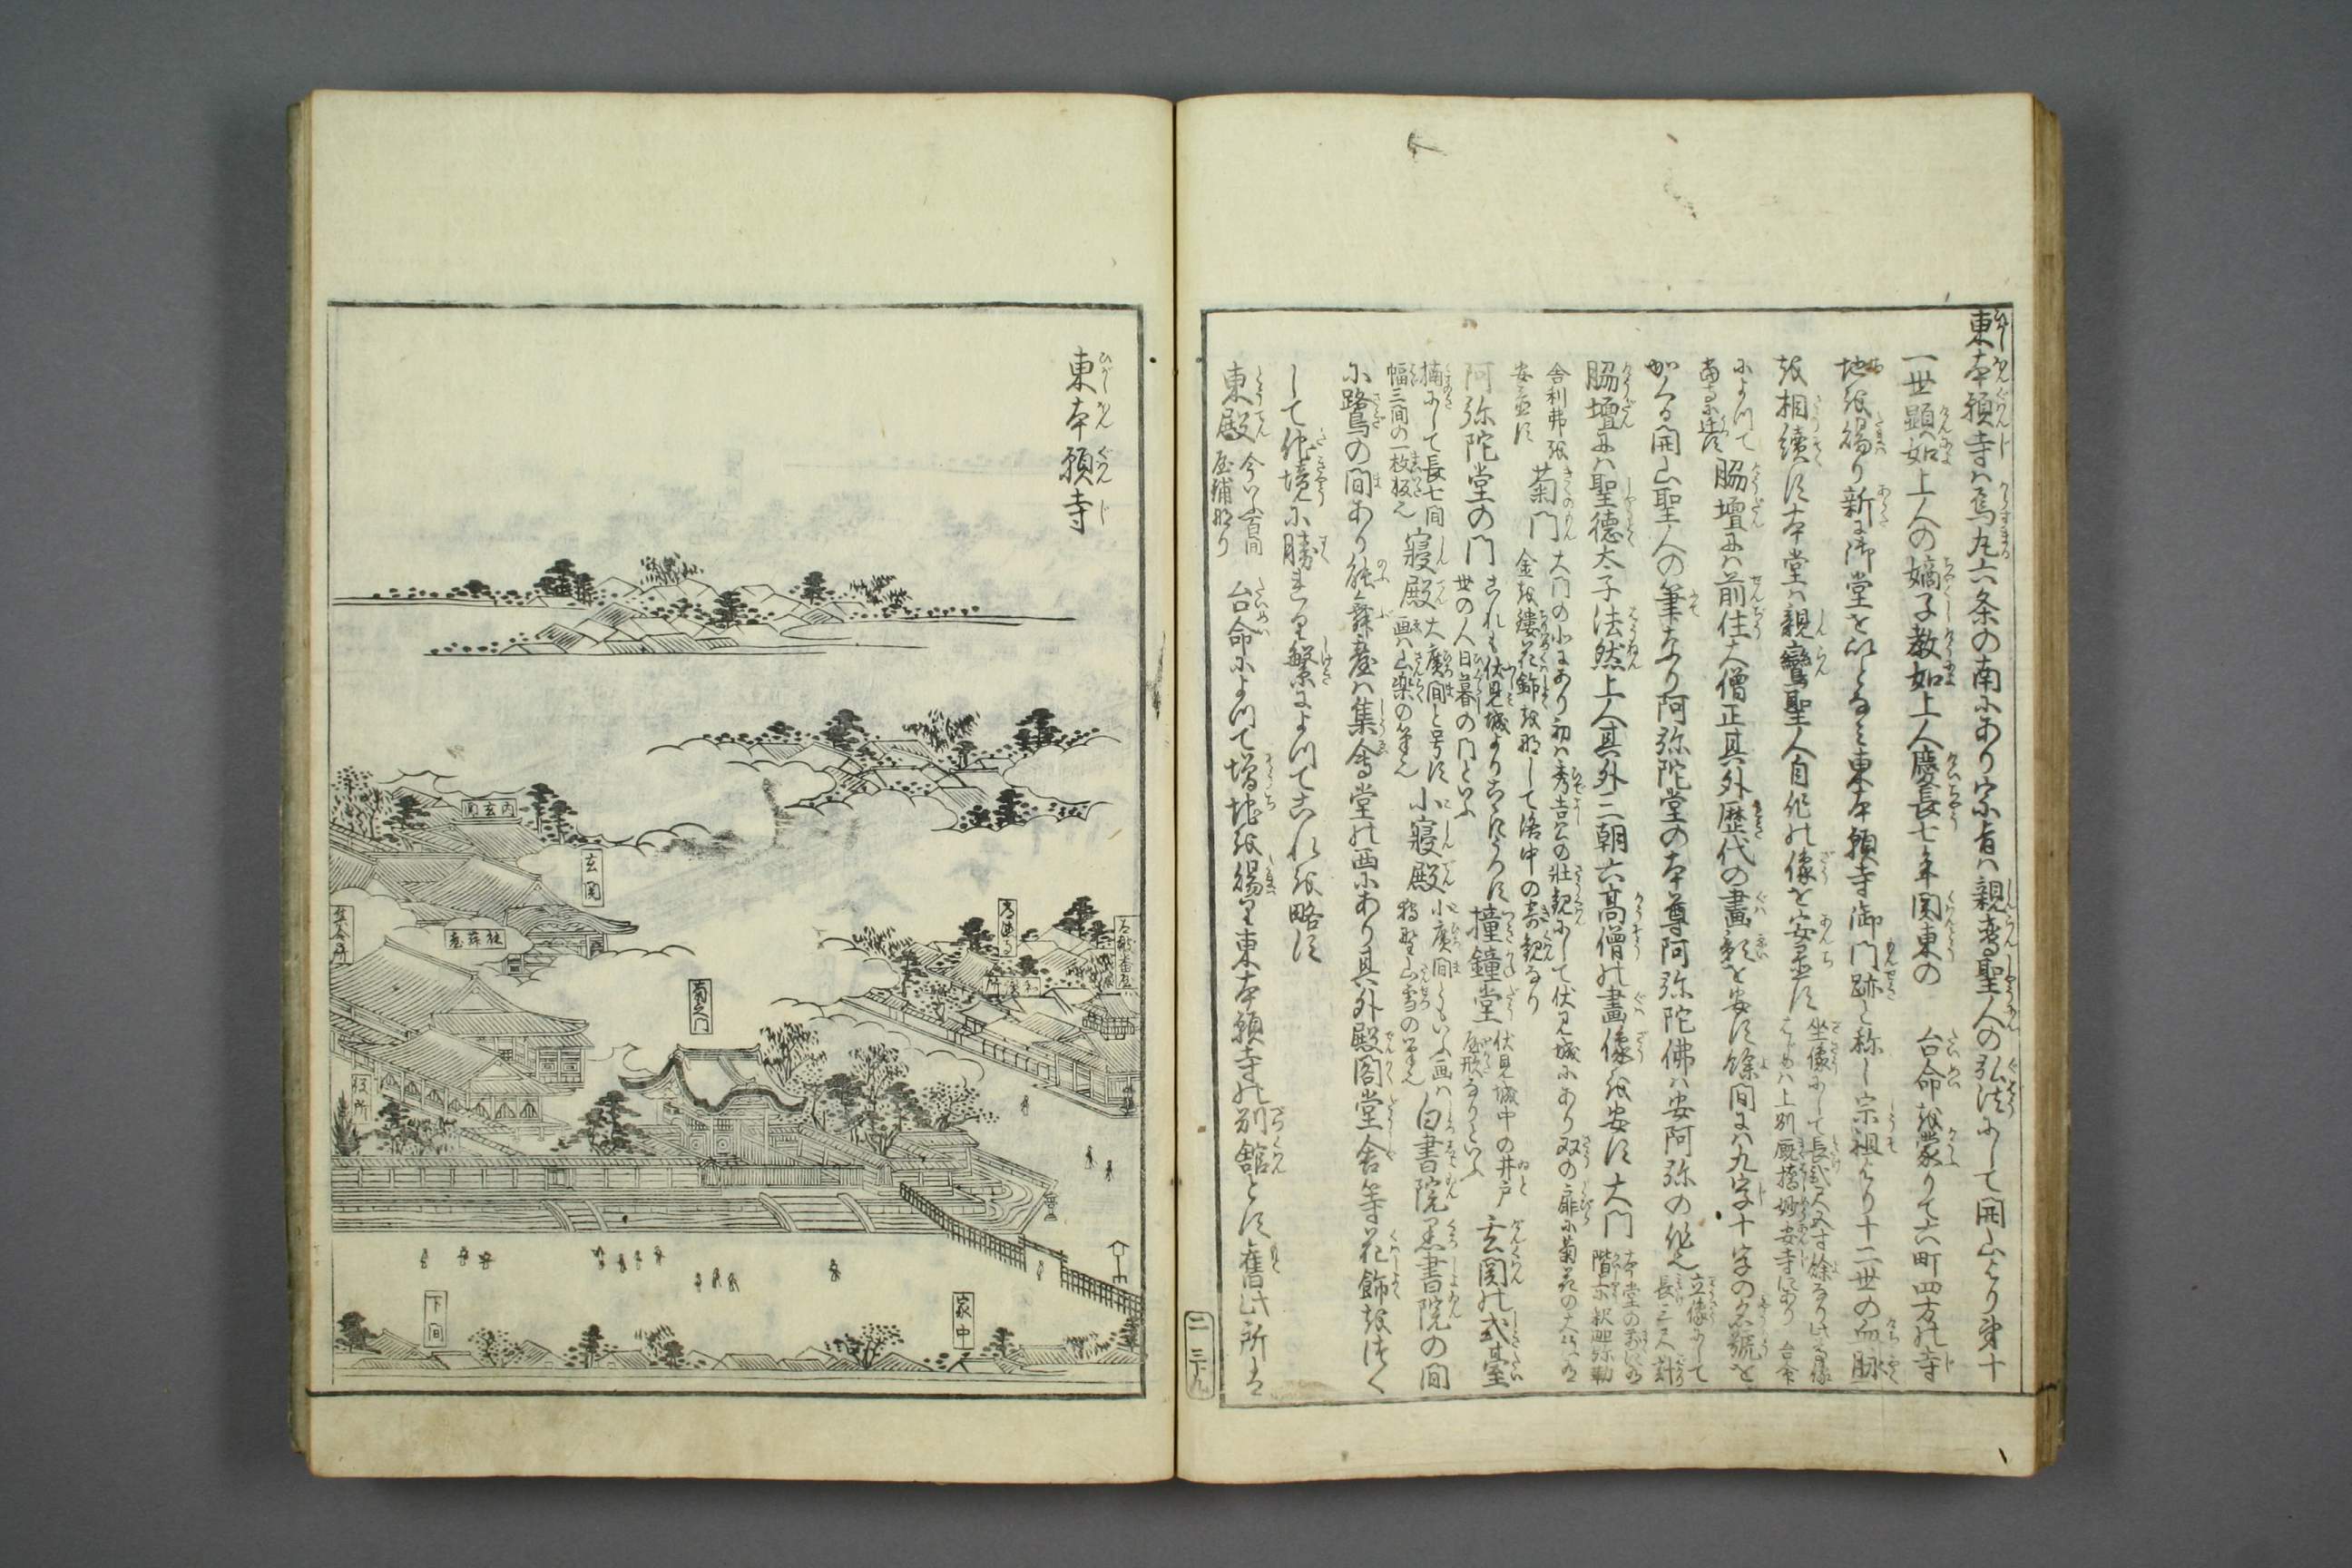 東本願寺ハ烏丸六条の南にあり宗旨ハ親鸞聖人の弘法にして開山より第十
一世顕如上人の嫡子教如上人慶長七年関東の　台命を蒙りて六町四方の寺
地を賜り新に御堂をいとなミ東本願寺御門跡と称し宗祖より十二世の血脉
を相続す本堂ハ親鸞聖人自作の像を安置す
坐像にして長弐尺五寸余なり此尊像
はじめハ上州厩橋妙安寺にあり　台命
によつて
当寺に迁す
脇壇にハ前住大僧正其外歴代の畫影を安す餘間にハ九字十字の名號を
かくる開山聖人の筆なり阿弥陀堂の本尊阿弥陀佛ハ安阿弥の作也
立像にして
長三尺計
脇壇にハ聖徳太子法然上人其外三朝六高僧の畫像を安す大門
本堂の前にあ
階上に釈迦弥勒
舎利弗を
安置す
菊門
大門の北にあり初ハ秀吉公の壮観にして伏見城にあり双の扉に菊花の大紋あ
金を鏤花飾を那して洛中の奇観なり
阿弥陀堂の門
これも伏見城よりこゝにうつす
世の人日暮の門といふ
撞鐘堂
伏見城中の井戸
屋形なりといふ
玄関の式臺
楠にして長七間
幅三間の一枚板也
寝殿
大廣間と号す
画ハ山楽の筆也
小寝殿
小廣間ともいふ画ハ
狩野山雪の筆也
白書院黒書院の間
に鷺の間あり能舞臺ハ集會堂の西にあり其外殿閣堂舎等花飾を尽く
して佗境に勝れり繁によつてこれを略す
東殿
今いふ百間
屋鋪那り
台命によつて増地を賜り東本願寺の別館とす舊此所ハ
二ノ三十九
東本願寺
内玄関
玄関
能舞臺
集会所
菊之門
役所
下間
家中